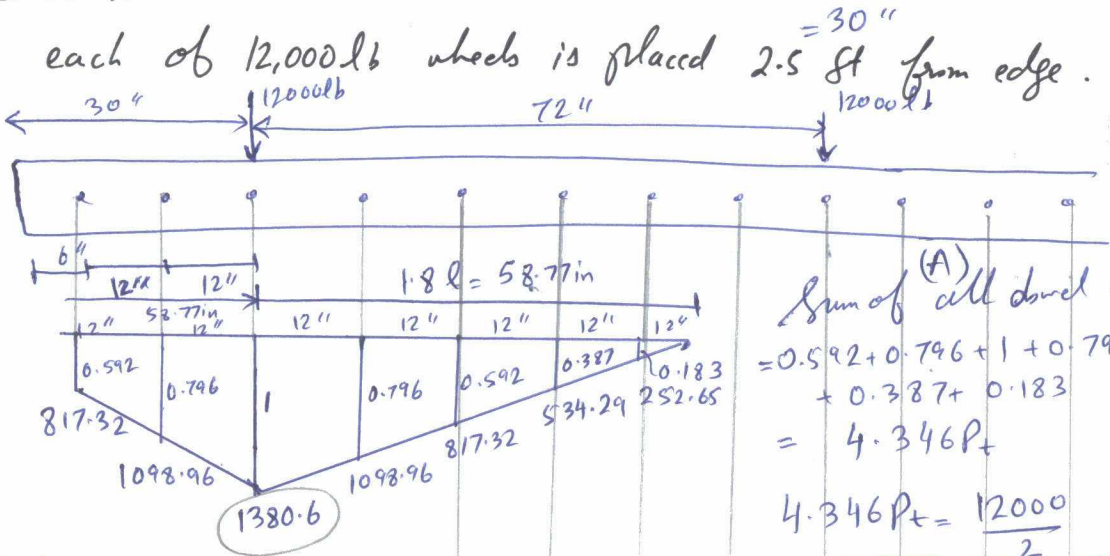 = 30 "
each of 12,000 lb wheels is placed 2.5 ft from edge.
30" 12000lb 72" 12000lb
6"
12" 12" 1.8 l = 58.77in
58.77in
12" 12" 12" 12" 12" 12" 12"
0.592 0.796 1 0.796 0.592 0.387 0.183
817.32 1098.96 1380.6 1098.96 817.32 534.29 252.65
(A)
Sum of all dowel
=0.592+0.796+1+0.79
+ 0.387+ 0.183
= 4.346Pt
4.346Pt= 12000
2